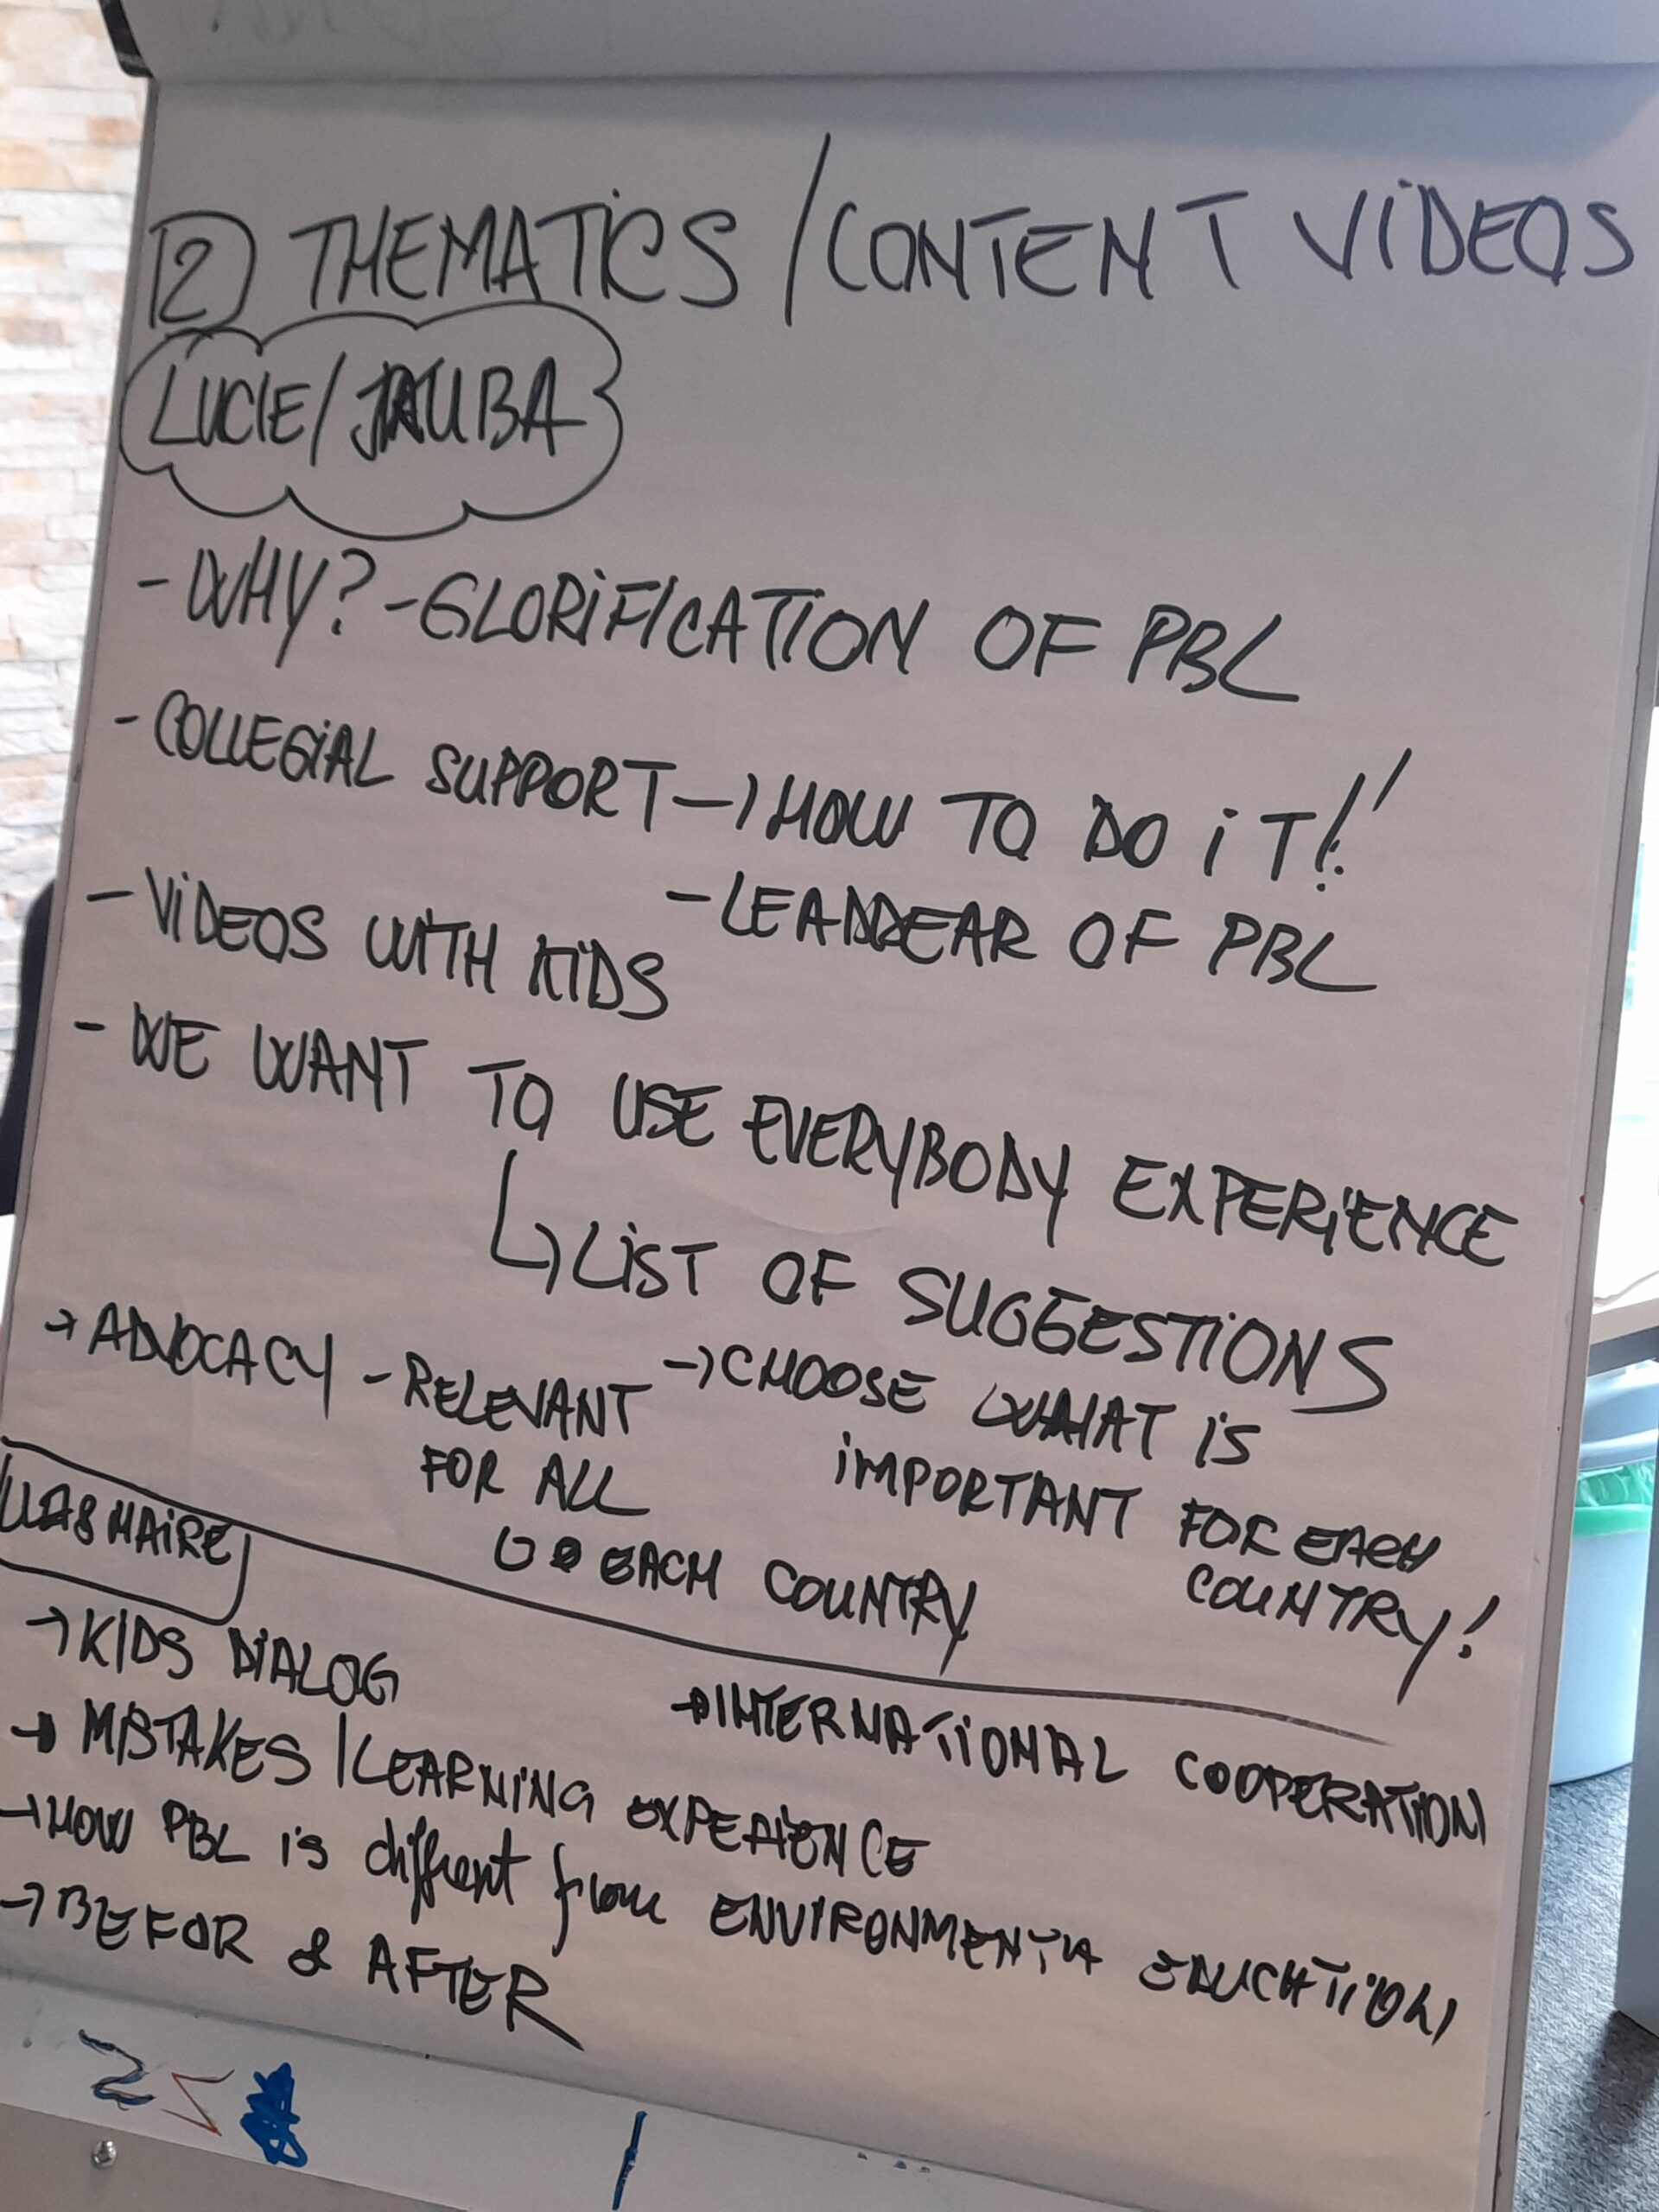 2 THEMATICS / CONTENT VIDEOS
LUCIE/JAUBA
- WHY? - GLORIFICATION OF PBL
- COLLEGIAL SUPPORT → HOW TO DO IT!!
- LEADDEAR OF PBL
- VIDEOS WITH KIDS
- WE WANT TO USE EVERYBODY EXPERIENCE
↳ LIST OF SUGGESTIONS
→ ADVOCACY - RELEVANT
FOR ALL
EACH COUNTRY
→ CHOOSE WHAT IS
IMPORTANT FOR EACH
COUNTRY!
→ KIDS DIALOG
→ INTERNATIONAL COOPERATION
→ MISTAKES / LEARNING EXPERIENCE
→ HOW PBL is diffrent from ENVIRONMENTA EDUCATION
→ BEFOR & AFTER